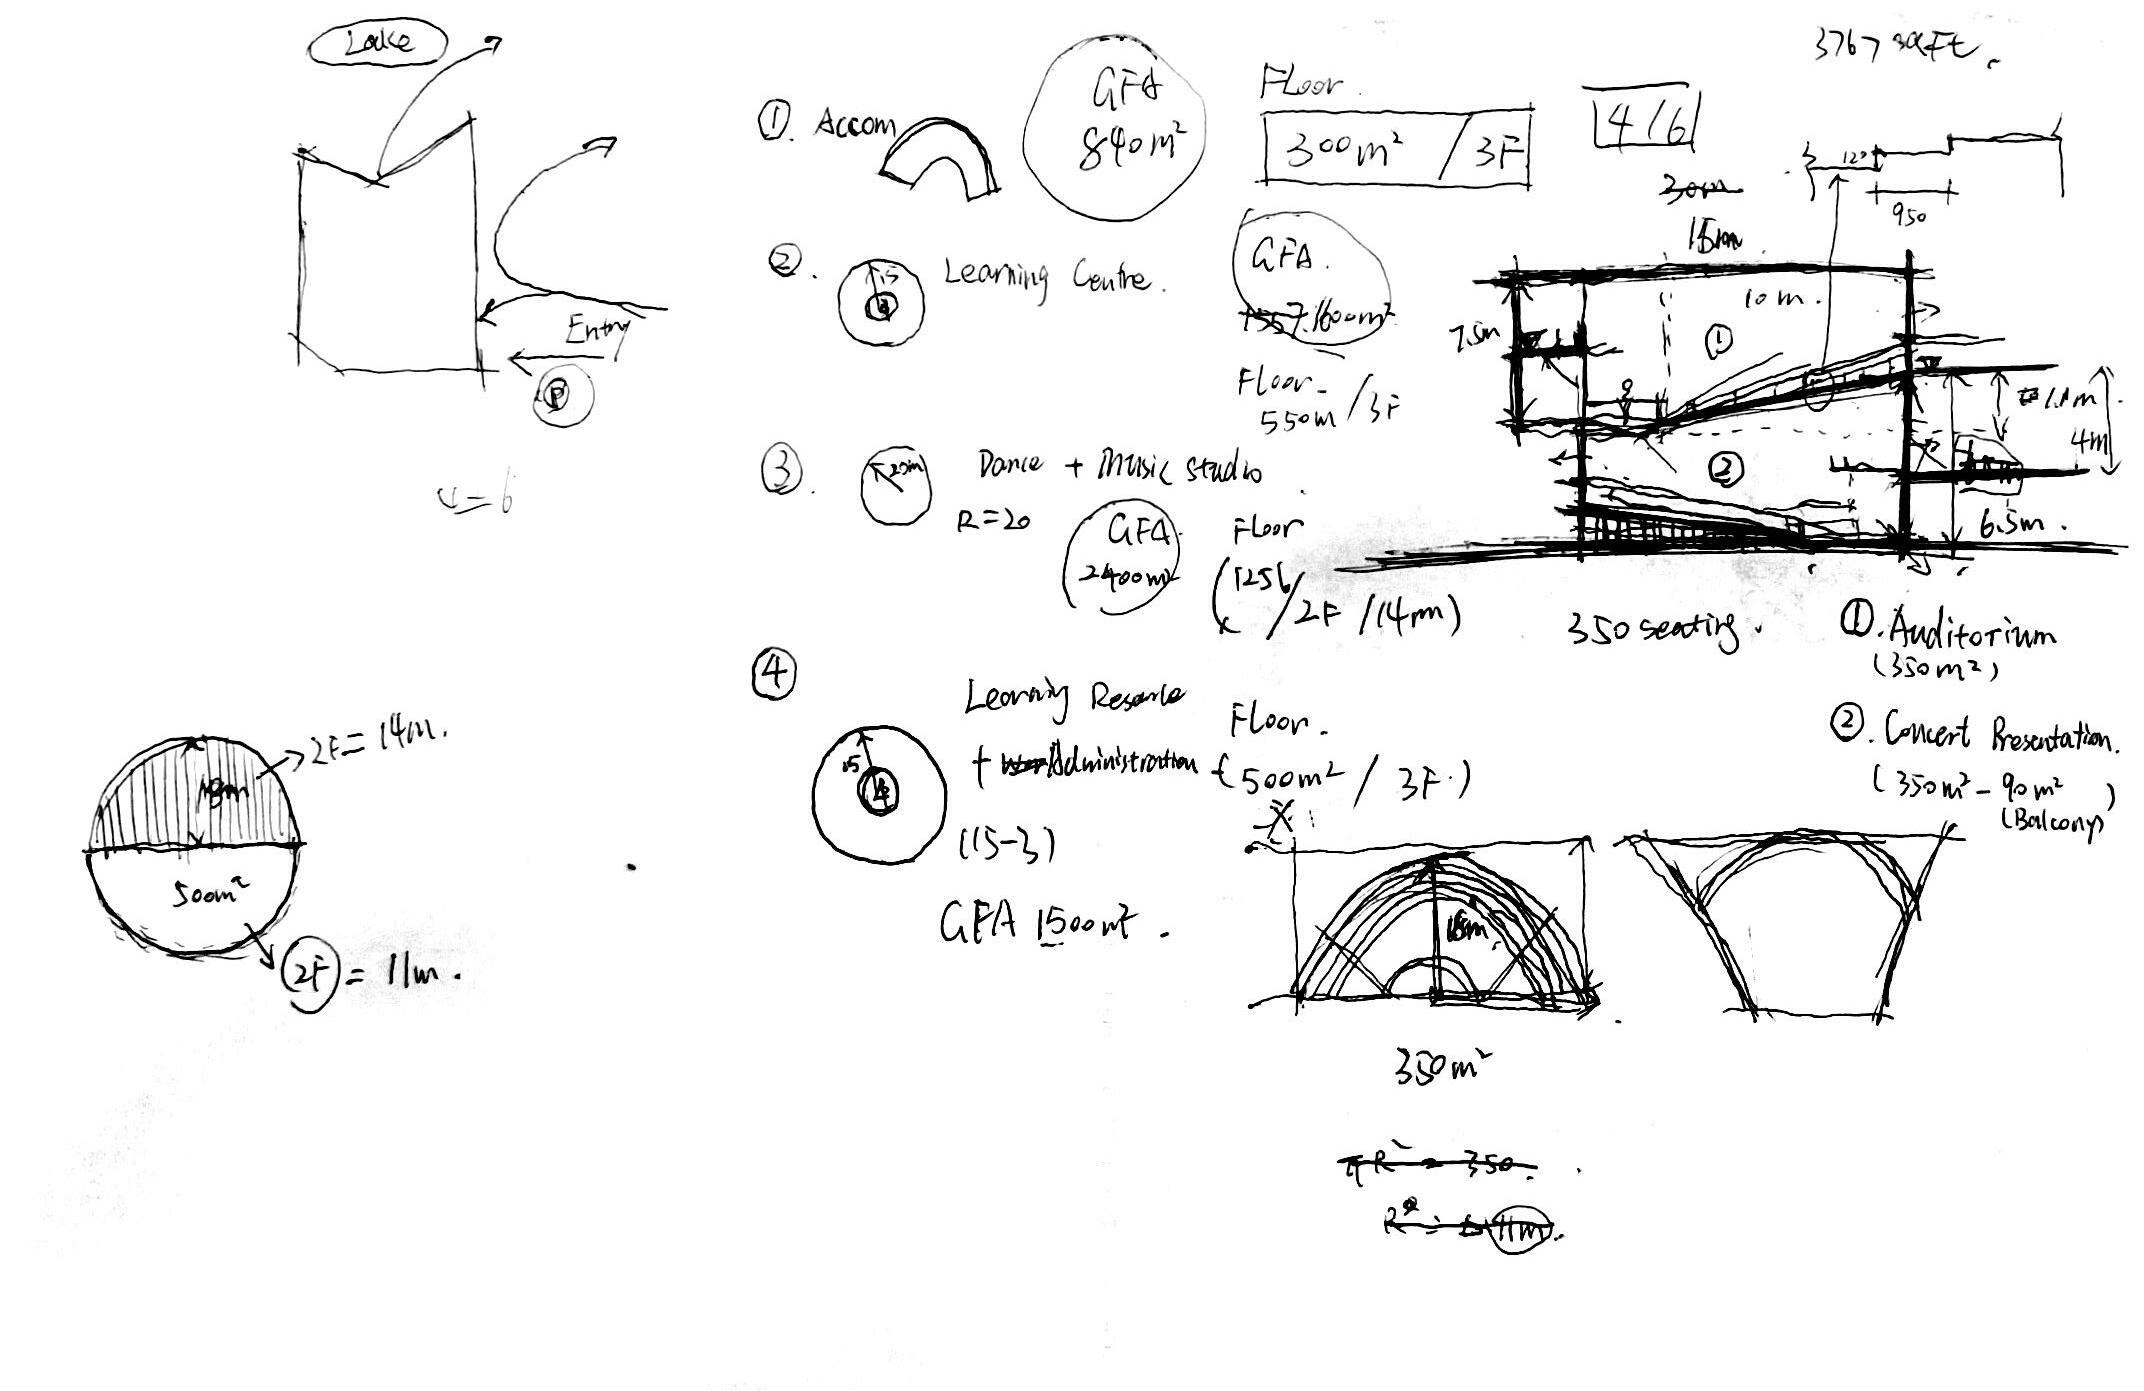 Lake
Entry
P
① Accom
GFA
840m²
Floor.
300m² / 3F
4/6
3767 sqFt.
120
950
30m
15m
10m.
7.5m
①
②
4m
6.5m.
②.
15
Learning Centre.
GFA.
1600m²
Floor-
550m / 3F
③.
20m
Dance + Music studio
R=20
GFA
2400m²
Floor
(1256
/2F /(4m)
④
15
Learning Resource
+ Administration
(15-3)
GFA 1500m².
Floor.
(500m² / 3F.)
350 seating.
①. Auditorium
(350m²)
②. Concert Presentation.
(350m² - 90m²
(Balcony)
)
2F = 14m.
500m²
2F = 11m.
18m.
350m²
πR² = 350.
11m.